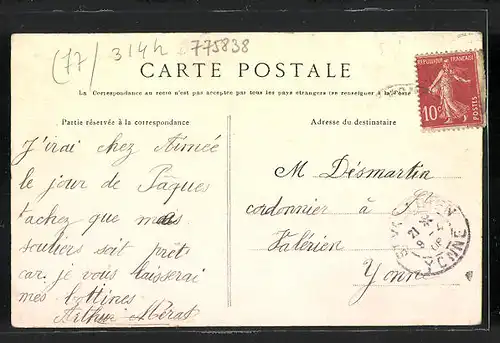 (77/ 314h 775838
CARTE POSTALE
La Correspondance au recto n'est pas acceptée par tous les pays étrangers (se renseigner à la Poste
RÉPUBLIQUE FRANÇAISE
10c
Partie réservée à la correspondance
Adresse du destinataire
J'irai chez Aimée
le jour de Pâques
tachez que mes
souliers soit prêt
car je vous laisserai
mes bottines
Arthur Mérat
M Désmartin
cordonnier à St
Valérien
Yonne
21
9
YONNE